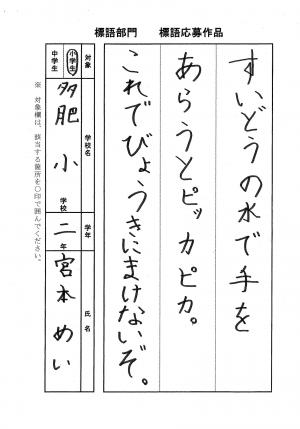 標語部門　標語応募作品
すいどうの水で手を
あらうとピッカピカ。
これでびょうきにまけないぞ。
対象
小学生
中学生
学校名
多肥小学校
学年
二年
氏名
宮本めい
※ 対象欄は、該当する箇所を〇印で囲んでください。